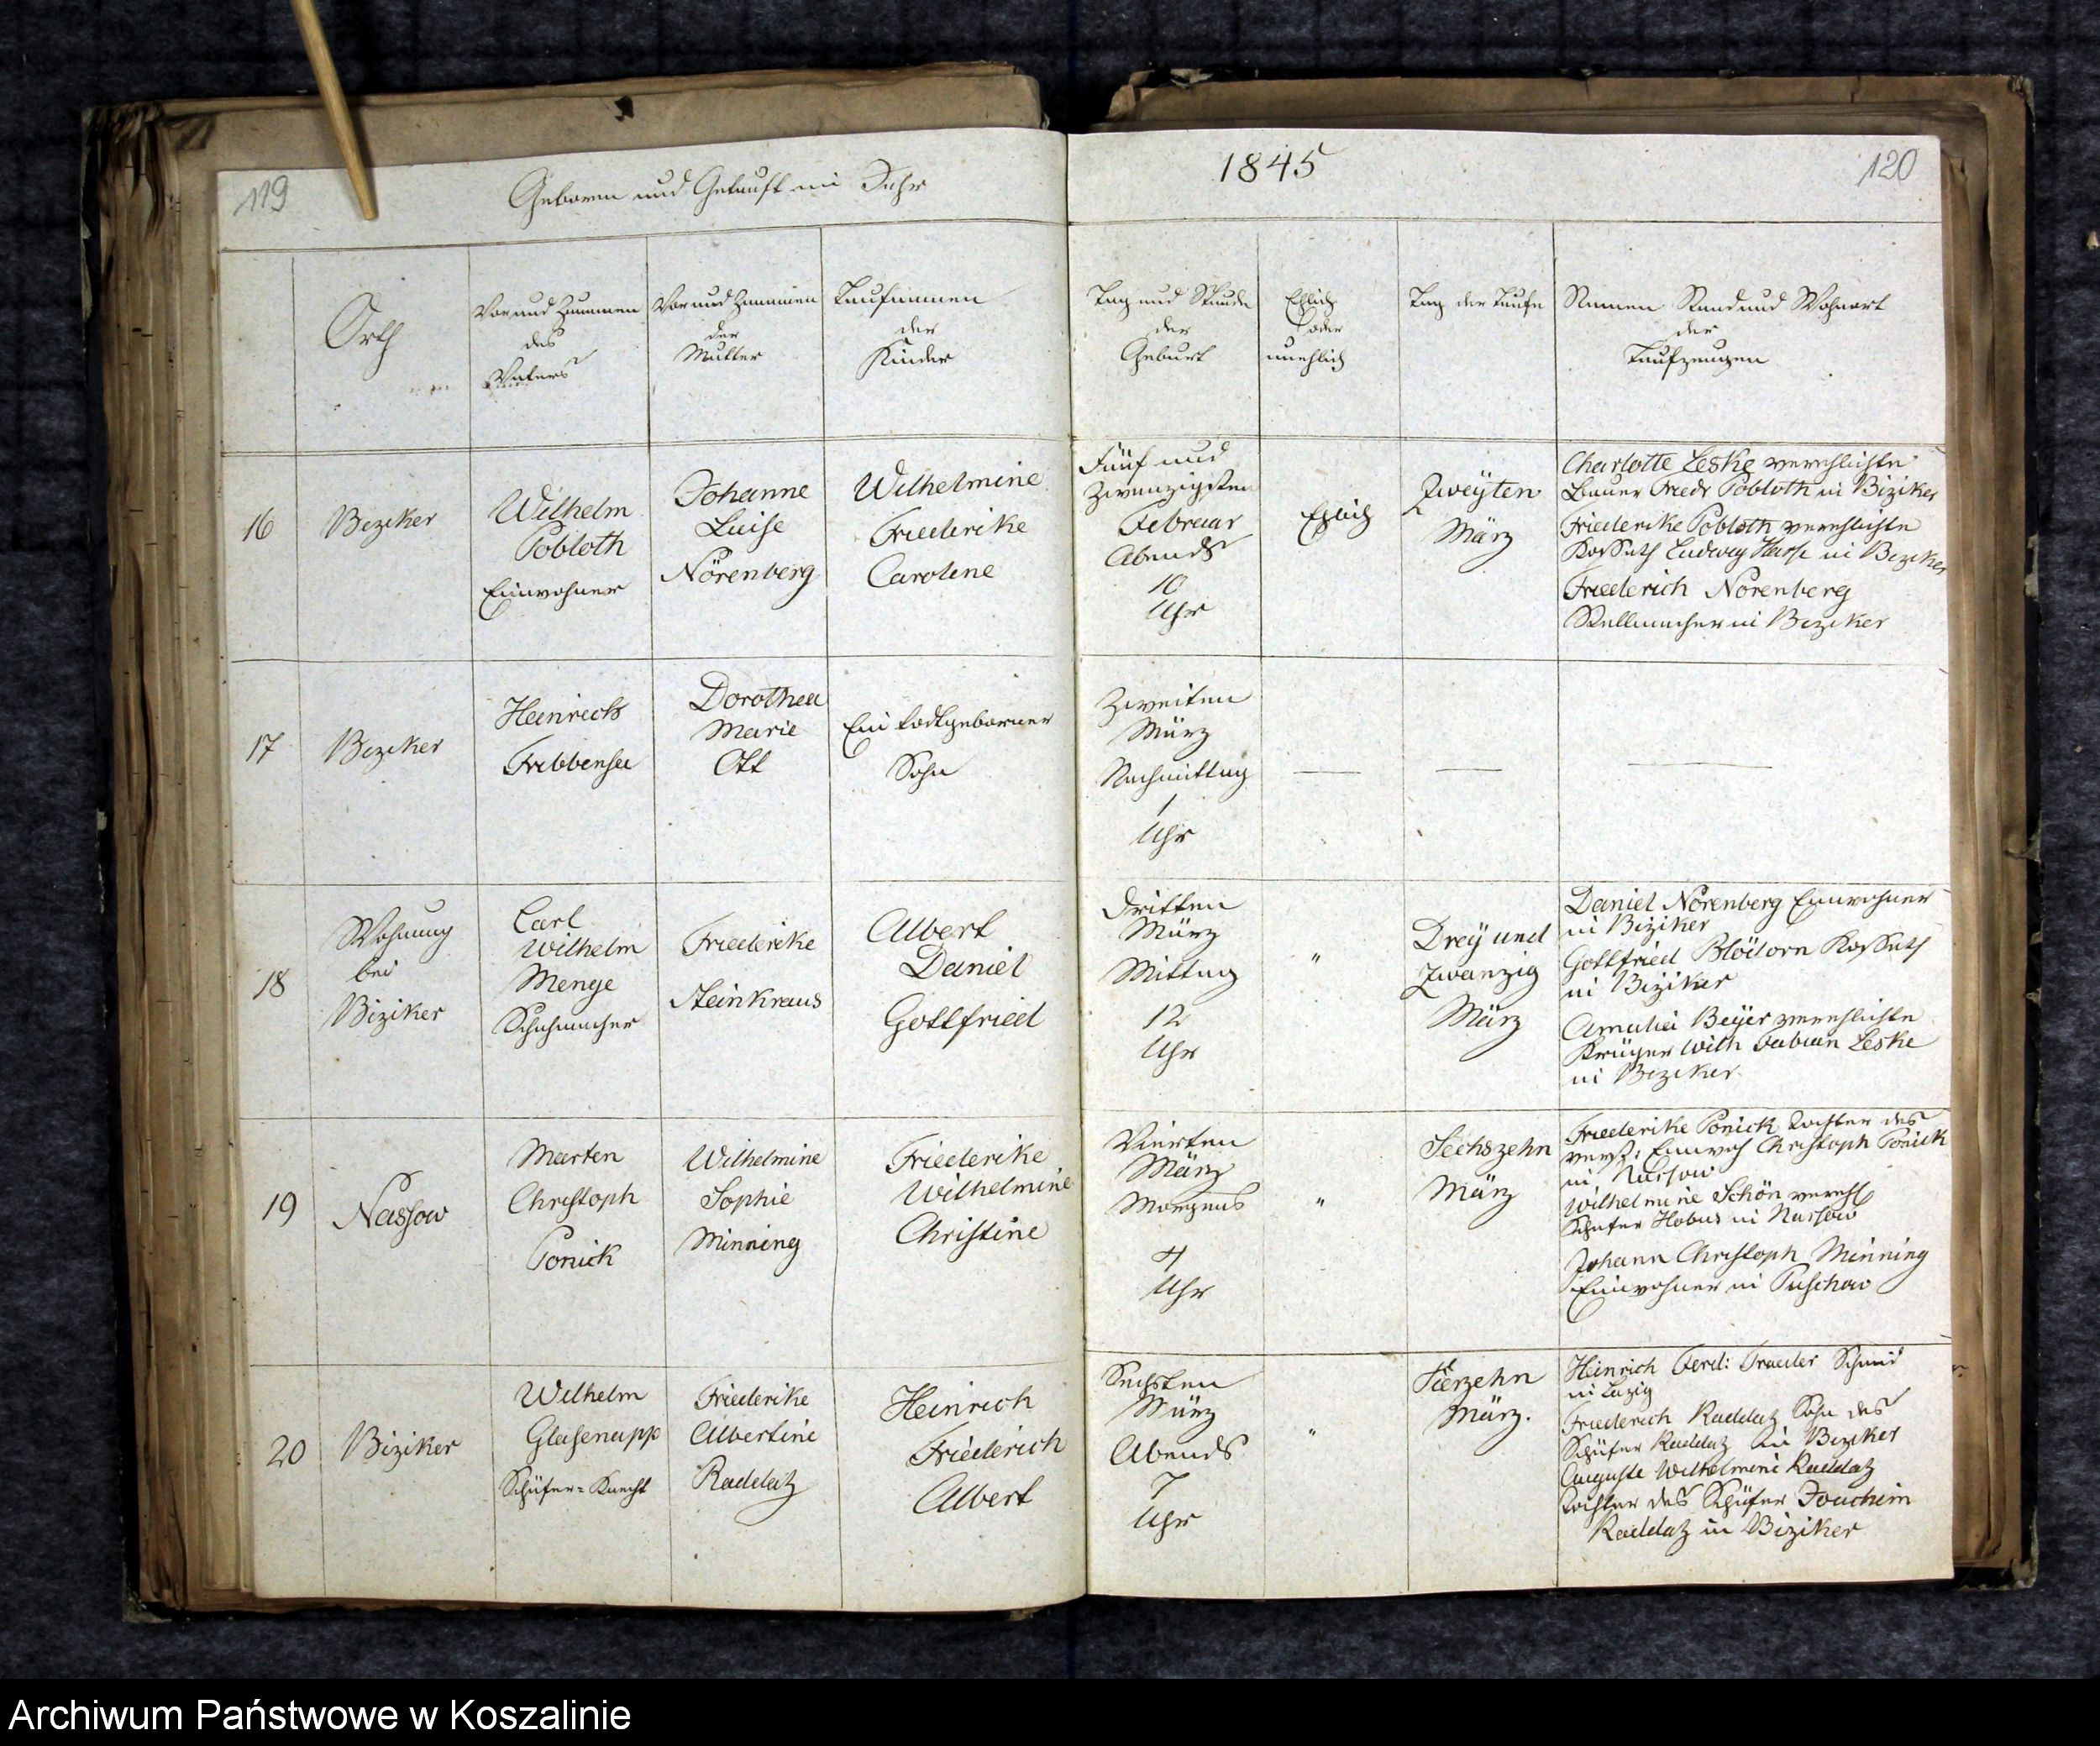 119
Geboren und Getauft im Jahr
1845
120
Orth
Vor und Zunamen
des
Vaters
Vor und Zunamen
der
Mutter
Taufnamen
der
Kinder
Tag und Stunde
der
Geburt
Ehlich
oder
unehlich
Tag der Taufe
Namen Stand und Wohnort
der
Taufzeugen
16
Biziker
Wilhelm
Pobloth
Einwohner
Johanne
Luise
Nörenberg
Wilhelmine
Friederike
Caroline
Fünf und
Zwanzigsten
Februar
Abends
10
Uhr
Ehlich
Zweyten
März
Charlotte Leske verehlichte
Bauer Friedr Pobloth in Biziker
Friederike Pobloth verehlichte
Kossath Ludwig Hasse in Biziker
Friederich Nörenberg
Stellmacher in Biziker
17
Biziker
Heinrich
Fribbensee
Dorothea
Marie
Ott
Ein todtgeborner
Sohn
Zweiten
März
Nachmittag
1
Uhr
18
Wohnung
bei
Biziker
Carl
Wilhelm
Menge
Schuhmacher
Friederike
Steinkraus
Albert
Daniel
Gottfried
Dritten
März
Mittag
12
Uhr
"
Drey und
Zwanzig
März
Daniel Nörenberg Einwohner
in Biziker
Gottfried Blödorn Kossath
in Biziker
Amalie Beyer verehlichte
Krüger Wilh Fabian Leske
in Biziker
19
Nassow
Marten
Christoph
Ponick
Wilhelmine
Sophie
Minning
Friederike
Wilhelmine
Christine
Vierten
März
Morgens
4
Uhr
"
Sechszehn
März
Friederike Ponick Tochter des
verst: Einwoh Christoph Ponick
in Nassow
Wilhelmine Schön verehl
Schäfer Hobus in Nassow
Johann Christoph Minning
Einwohner in Puschow
20
Biziker
Wilhelm
Glasenapp
Schäfer=Knecht
Friederike
Albertine
Raddatz
Heinrich
Friederich
Albert
Sechsten
März
Abends
7
Uhr
"
März.
Heinrich Ferd: Schmid
in Lazig
Friederich Raddatz Sohn des
Schäfer Raddatz in Biziker
Auguste Wilhelmine Raddatz
Tochter des Schäfer Joachim
Raddatz in Biziker
Archiwum Państwowe w Koszalinie